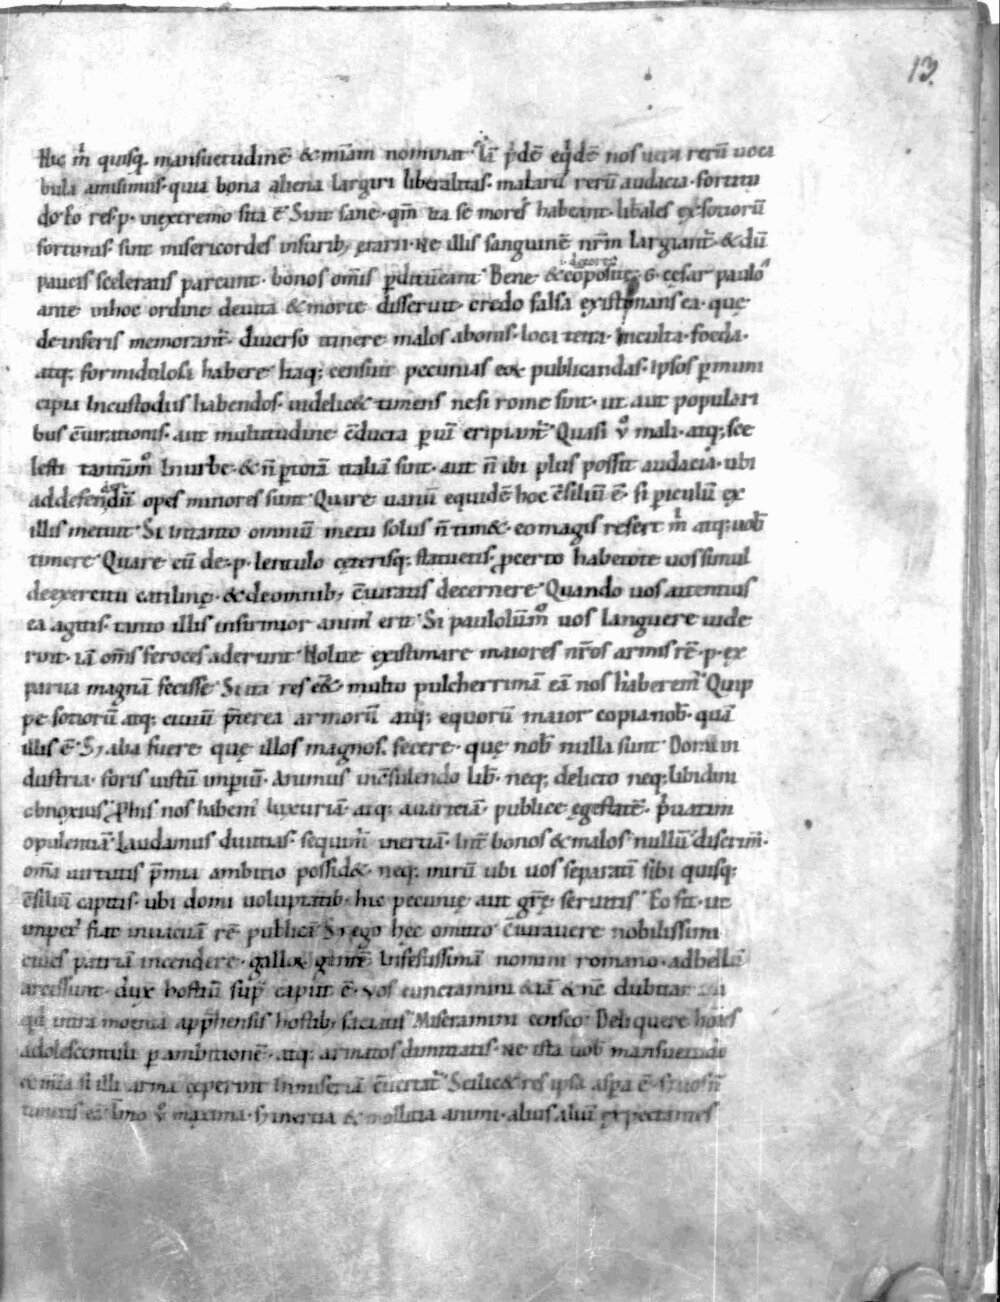 13.
Hic m̄ quisq. mansuetudinē & miam nominat. Iā pdē eqdē nos uera rerū uoca
bula amisimus. quia bona aliena largiri liberalitas. malarū rerū audacia. fortitu
do. eo res. p. inextremo sita ē. Sint sane. qm̄ ita se mores habeant. libales ex sotiorū
fortunis. sint misericordes infurib; erarii. ne illis sanguinē nrm̄ largiant̄. & dū
paucis sceleratis parcunt. bonos om̄s pditū eant. Bene &cōposite. G. cęsar paulo
ante inhoc ordine deuita & morte disseruit. credo falsa existimans ea. quę
deinferis memorant̄. diuerso itinere malos abonis. loca tetra. inculta. foeda.
atq; formidulosa habere. Itaq; censuit pecunias eo publicandas. Ipsos p
cipia Incustodiis habendos. uidelic& timens nesi rome sint. ut aut populari
bus c̄iurationis. aut multitudine c̄ducta p uī eripiant̄. Quasi ū mali. atq; sce
lesti tantūm Inurbe. & n̄ p totā italiā sint. aut n̄ ibi plus possit audacia. ubi
addefendēdū opes minores sunt. Quare uanū equidē hoc c̄siliū ē. si piculū ex
illis metuit. Si Intanto omniū metu solus n̄ tim&. eo magis refert m̄ atq; uob̄
timere. Quare cū de. p. lentulo cęterisq; statuetis. p certo habetote uos simul
deexercitu catilinę. & deomnib; c̄iuratis decernere. Quando uos attentius
ea agitis. tanto illis infirmior anim erit. Si paulolūm uos languere uide
rint. iā om̄s feroces aderunt. Nolite existimare maiores nr̄os armis rē. p. ex
parua magnā fecisse. Si ita res e&. multo pulcherrimā eā nos haberem. Quip
pe sotiorū atq; ciuiū p̄terea armorū atq; equorū maior copia nob̄. quā
illis ē. S; alia fuere quę illos magnos fecere. quę nob̄ nulla sunt. Domi in
dustria. foris iustū impiū. Animus inc̄sulendo lib̄. neq; delicto neq; libidini
obnoxius. P his nos habem luxuriā atq; auaritiā. publice egestatē. p̄uatim
opulentiā. Laudamus diuitias. sequim inertiā. Int̄ bonos & malos nullū discrim̄.
om̄a uirtutis p̄mia ambitio possid&. neq; mirū ubi uos separatī sibi quisq;
c̄siliū capitis. ubi domi uoluptatib; hic pecunię aut gr̄ę seruitis. Eo fit. ut
impet fiat inuacuā rē publicā. S; ego hęc omitto. c̄iurauere nobilissimi
ciues patriā incendere. gallo&amp; gentē Infestissimā nomini romano. adbellū
arcessunt. dux hostiū sup̄ caput ē. Vos cunctamini &iā & n̄c dubitatis
qd̄ intra moenia app̄hensis hostib; faciatis. Misereamini censeo. Deliquere hoīes
adolescentuli p ambitionē. atq; armatos dimittatis. Ne ista uob̄ mansuetudo
& mīa si illi arma ceperint Inmiseriā c̄uertat̄. Scilic& res ipsa aspa ē. s; uos n̄
timetis eā. Imo ū maxima. s; inertia & mollitia animi. alius aliū expectantes